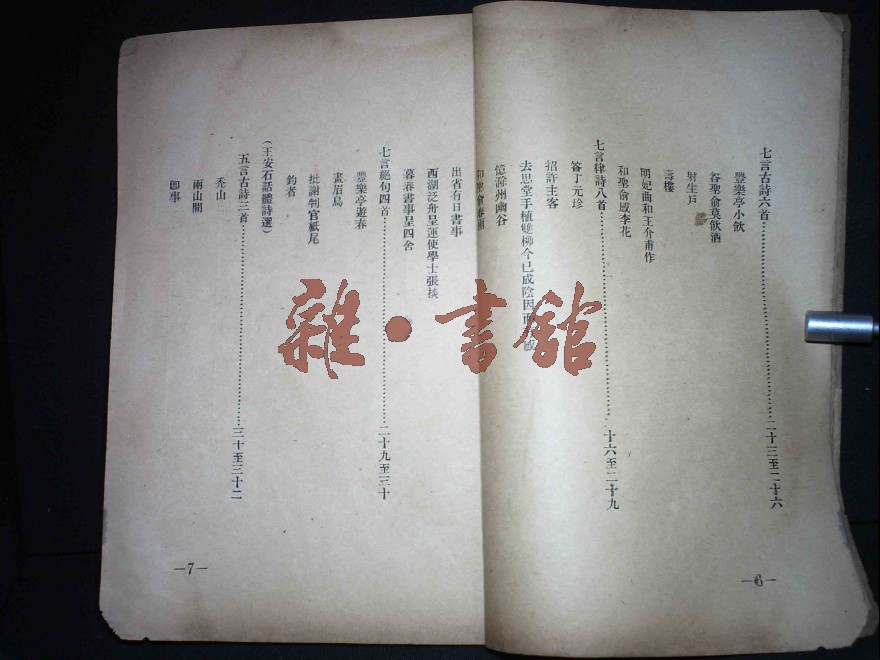 七言古詩六首……二十三至二十六
豐樂亭小飲
答聖俞莫飲酒
射生戶
壽樓
明妃曲和王介甫作
和聖俞感李花
七言律詩八首……十六至二十九
答丁元珍
招許主客
去思堂手植雙柳今已成陰因而
憶滁州幽谷
和聖俞春雨
出省有日書事
西湖泛舟呈運使學士張掞
暮春書事呈四舍
七言絕句四首……二十九至三十
豐樂亭遊春
畫眉鳥
批謝判官紙尾
釣者
(王安石話體詩選)
五言古詩三首……三十至三十二
禿山
兩山間
卽事
—6—
—7—
雜·書館